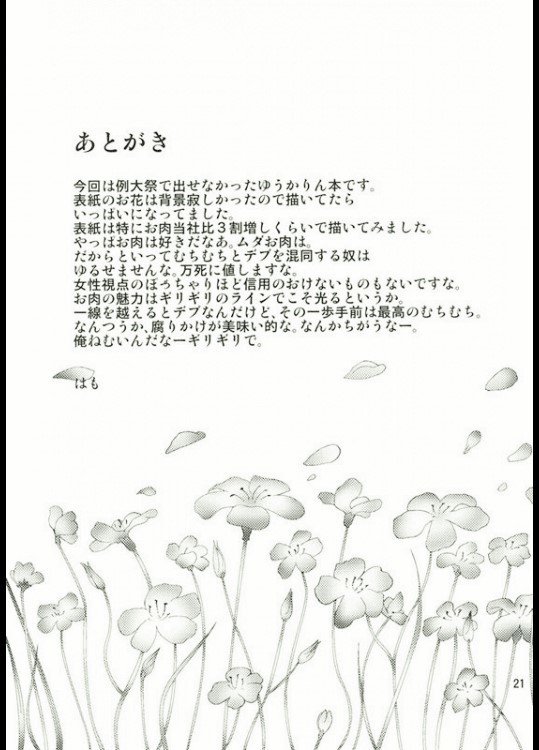 あとがき
今回は例大祭で出せなかったゆうかりん本です。
表紙のお花は背景寂しかったので描いてたら
いっぱいになってました。
表紙は特にお肉当社比３割増しくらいで描いてみました。
やっぱお肉は好きだなあ。ムダお肉は。
だからといってむちむちとデブを混同する奴は
ゆるせませんな。万死に値しますな。
女性視点のぽっちゃりほど信用のおけないものもないですな。
お肉の魅力はギリギリのラインでこそ光るというか。
一線を越えるとデブなんだけど、その一歩手前は最高のむちむち。
なんつうか、腐りかけが美味い的な。なんかちがうなー。
俺ねむいんだなーギリギリで。
はも
21